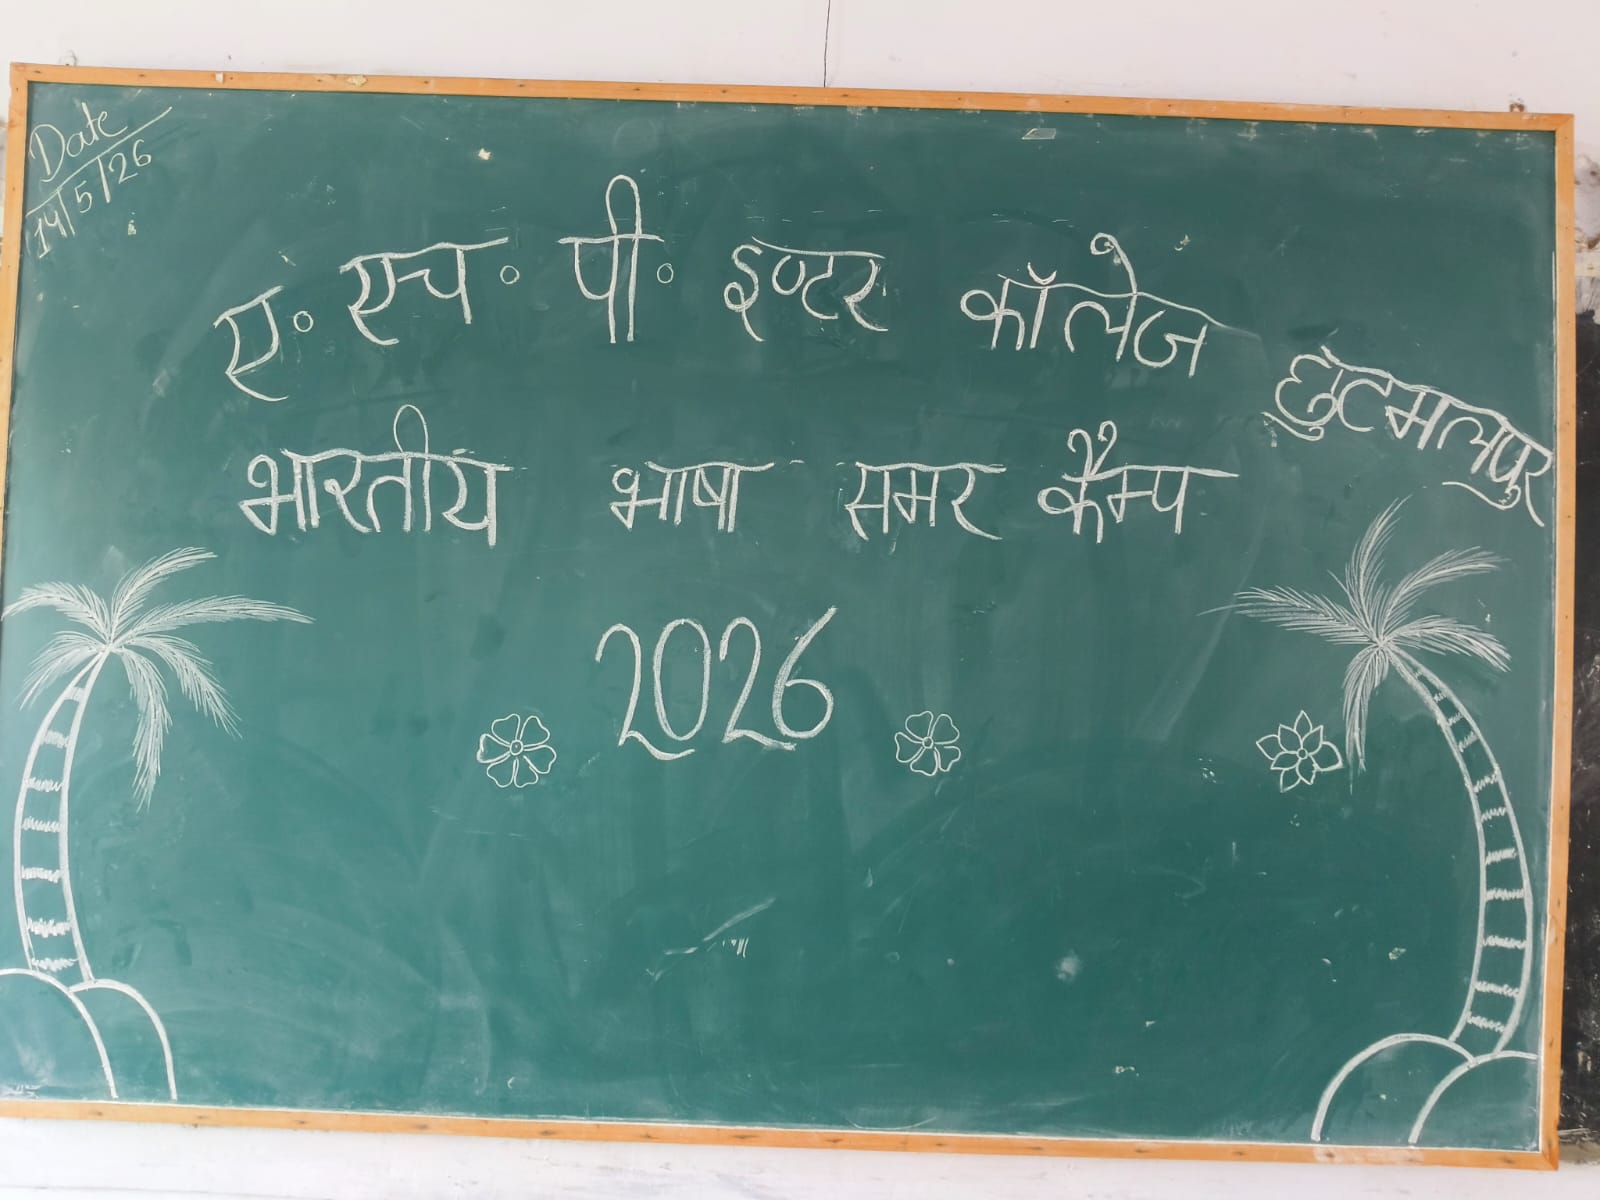 Date
14/5/26
ए॰ एच॰ पी॰ इण्टर कॉलेज छुटमलपुर
भारतीय भाषा समर कैम्प
2026